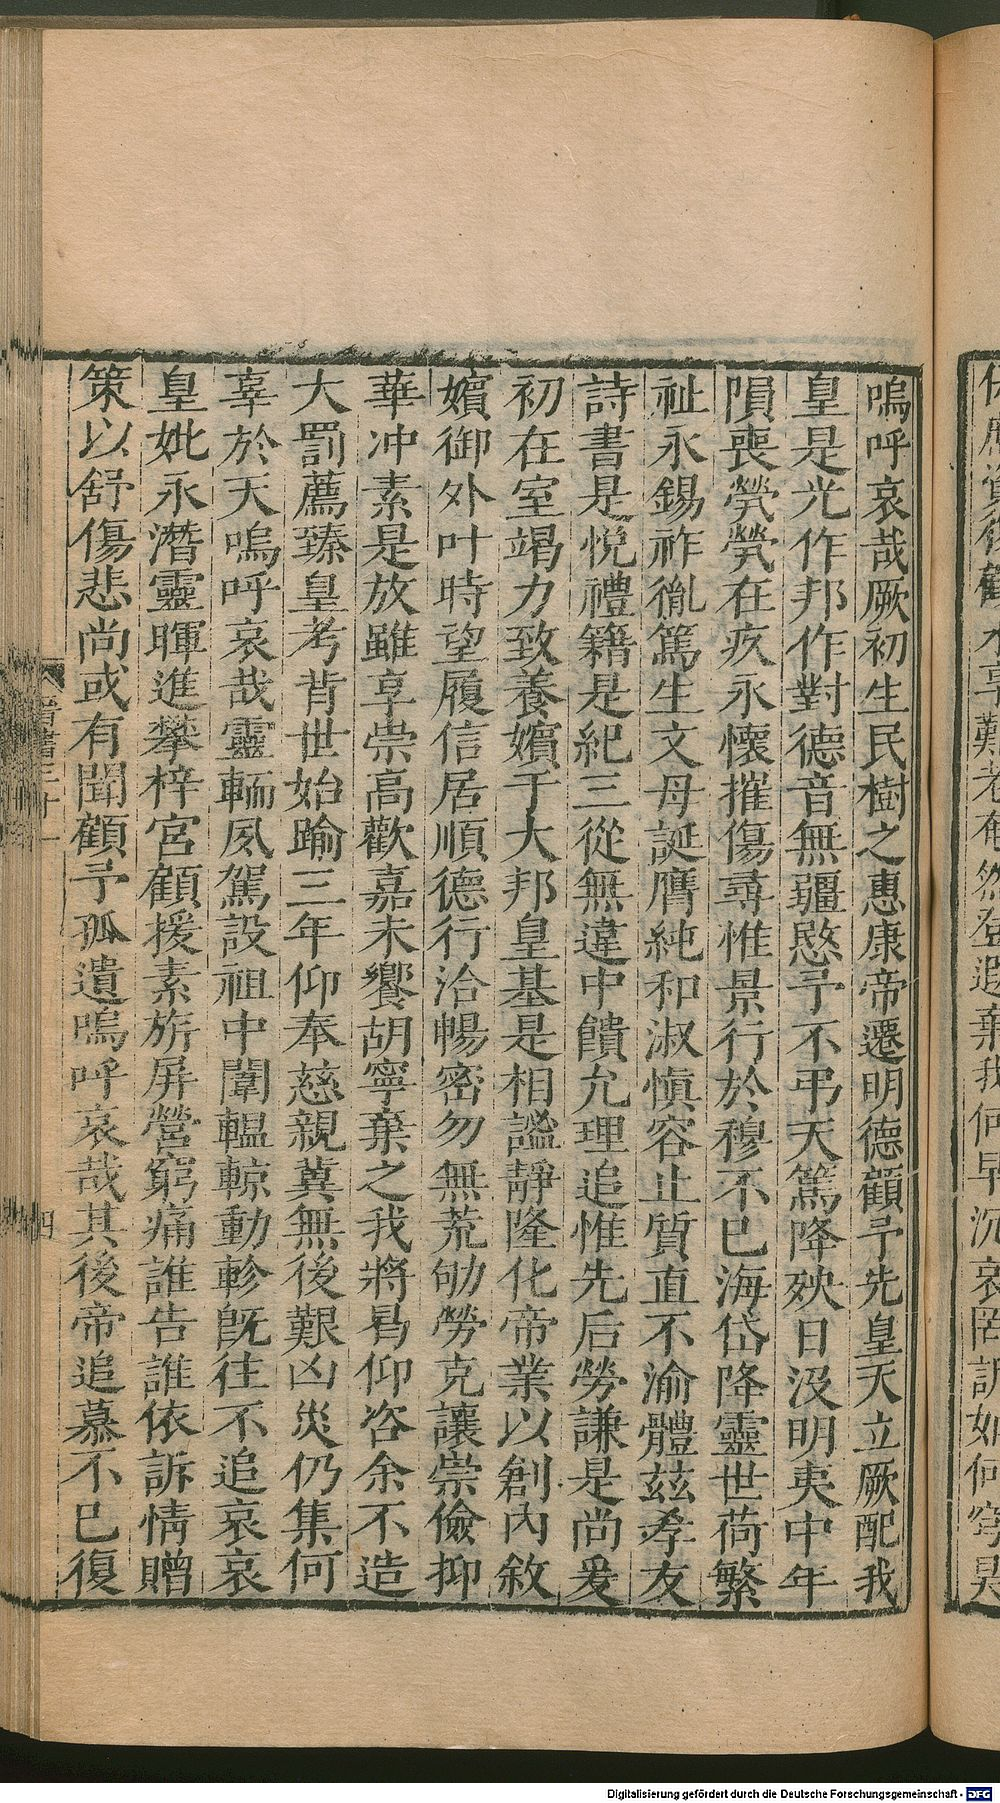 嗚呼哀哉厥初生民樹之惠康帝遷明德顧予先皇天立厥配我
皇是光作邦作對德音無疆愍予不弔天篤降殃日沒明夷中年
隕喪煢煢在疚永懷摧傷尋惟景行於穆不已海岱降靈世荷繁
祉永錫祚胤篤生文母誕膺純和淑慎容止質直不渝體茲孝友
詩書是悅禮籍是紀三從無違中饋允理追惟先后勞謙是尚爰
初在室竭力致養嬪于大邦皇基是相謐靜隆化帝業以創內敘
嬪御外叶時望履信居順德行洽暢密勿無荒劬勞克讓崇儉抑
華冲素是放雖享崇高歡嘉未饗胡寧棄之我將曷仰咨余不造
大罰薦臻皇考背世始踰三年仰奉慈親冀無後艱凶災仍集何
辜於天嗚呼哀哉靈輀夙駕設祖中闈轀輬動軫既往不追哀哀
皇妣永潛靈暉進攀梓宮顧援素旂屏營窮痛誰告誰依訴情贈
策以舒傷悲尚或有聞顧予孤遺嗚呼哀哉其後帝追慕不已復
四
Digitalisierung gefördert durch die Deutsche Forschungsgemeinschaft - DFG